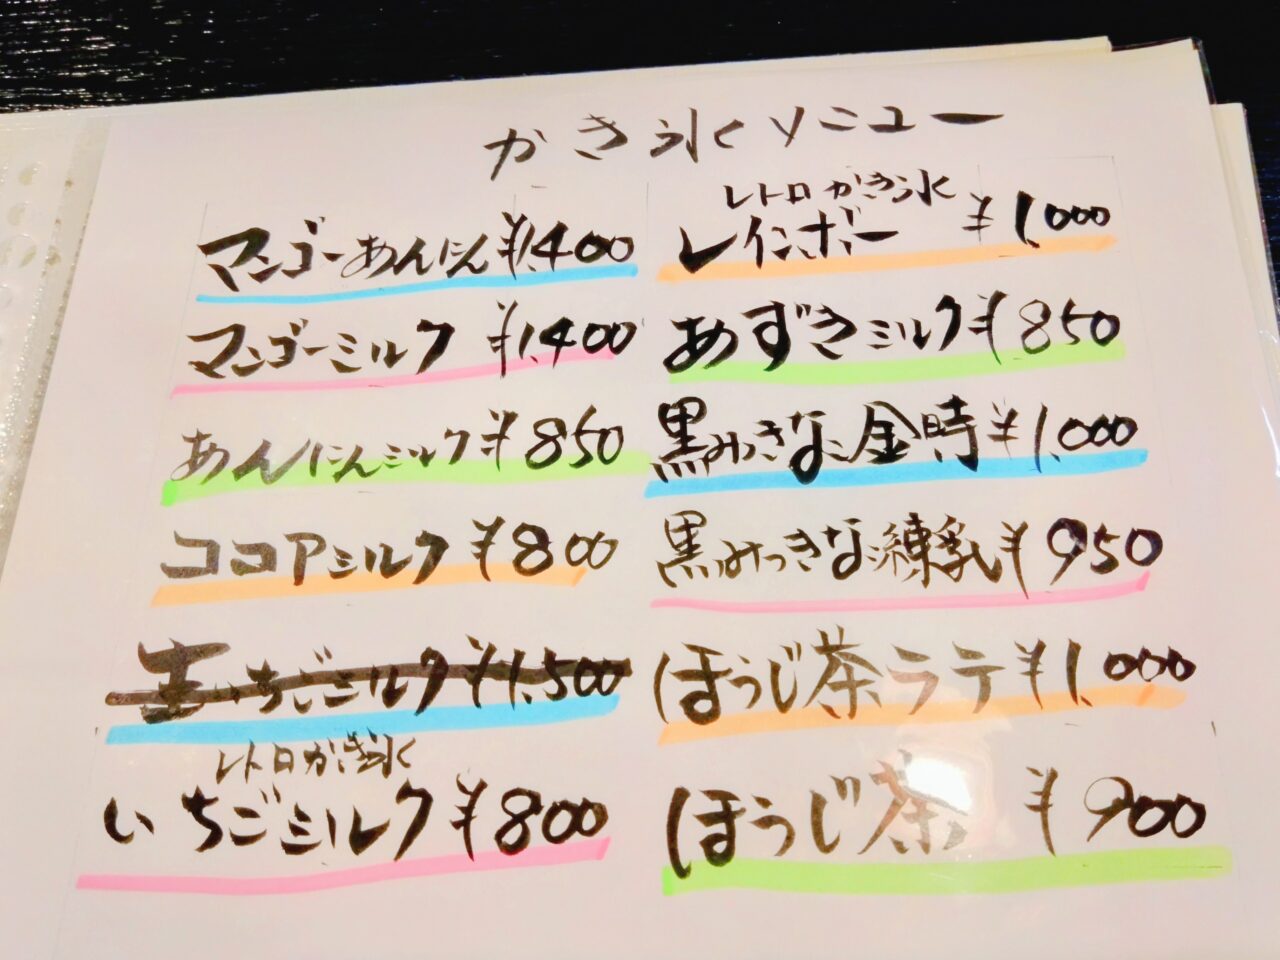 かき氷メニュー
マンゴーあんにん ¥1,400
マンゴーミルク ¥1,400
あんにんミルク ¥850
ココアミルク ¥800
生いちごミルク ¥1,500
レトロかき氷
いちごミルク ¥800
レトロかき氷
レインボー ¥1,000
あずきミルク ¥850
黒みつきなこ金時 ¥1,000
黒みつきなこ練乳 ¥950
ほうじ茶ラテ ¥1,000
ほうじ茶 ¥900